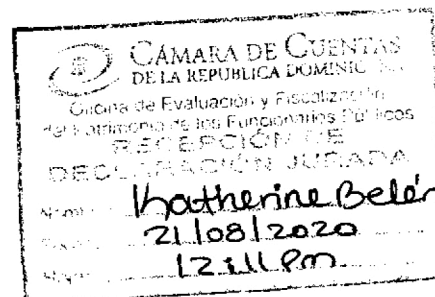 CÁMARA DE CUENTAS
DE LA REPUBLICA DOMINIC
Oficina de Evaluación y Fiscalización
del Patrimonio de los Funcionarios Públicos
RECEPCIÓN DE
DECLARACIÓN JURADA
Katherine Belén
21/08/2020
12:11 Pm